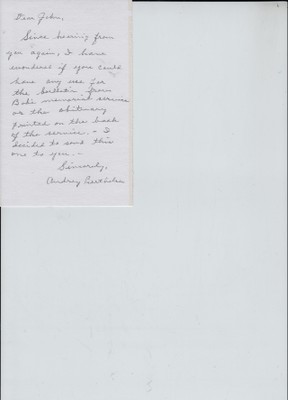 Dear John,
Since hearing from
you again, I have
wondered if you could
have any use for
the bulletin from
Bob's memorial service
or the obituary
printed on the back
of the service. - I
decided to send this
one to you. -
Sincerely,
Audrey